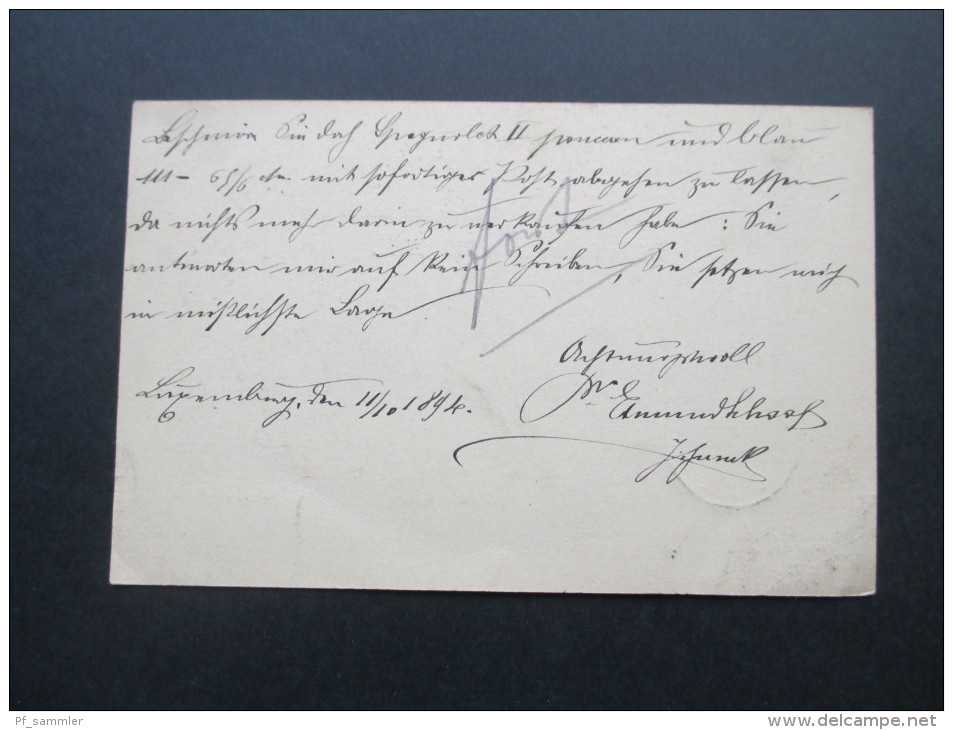 Sie doch Spagnolet II ponceau und blau
111 - 65/6 ctm mit sofortiger Post abgehen zu lassen,
da nichts mehr darin zu verkaufen habe : Sie
antworten mir auf kein Schreiben, Sie setzen mich
in mißlichste Lage
Achtungsvoll
Luxemburg, den 11/10 1894.
Pf_sammler
www.delcampe.net